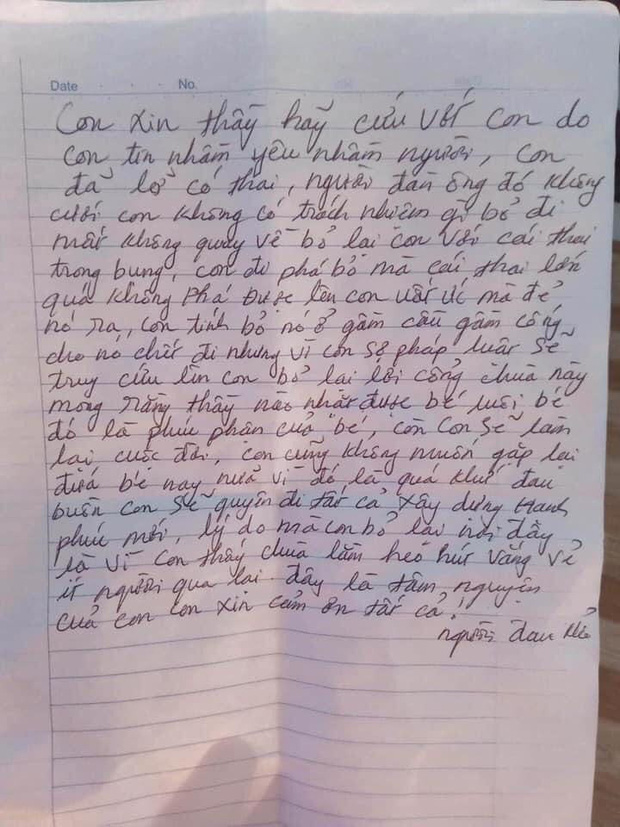 Date No.
Con xin thầy hãy cứu với con do
con tin nhầm yêu nhầm người, con
đã lở có thai, người đàn ông đó không
cưới con không có trách nhiệm gì bỏ đi
mất không quay về bỏ lại con với cái thai
trong bụng, con đi phá bỏ mà cái thai lớn
quá không phá được lên con uất ức mà đẻ
nó ra, con tính bỏ nó ở gầm cầu gầm cống
cho nó chết đi nhưng vì con sợ pháp luật sẽ
truy cứu lên con bỏ lại lời cổng chùa này
mong rằng thầy nào nhặt được bé nuôi bé
đó là phúc phần của bé, còn con sẽ làm
lại cuộc đời, con cũng không muốn gặp lại
đứa bé nay nữa vì đó là quá khứ đau
buồn con sẽ quyên đi tất cả xây dựng hạnh
phúc mới, lý do mà con bỏ lại nơi đây
là vì con thấy chùa lắm heo hút vắng vẻ
ít người qua lại. đây là tâm nguyện
của con con xin cảm ơn tất cả!
người đau khổ